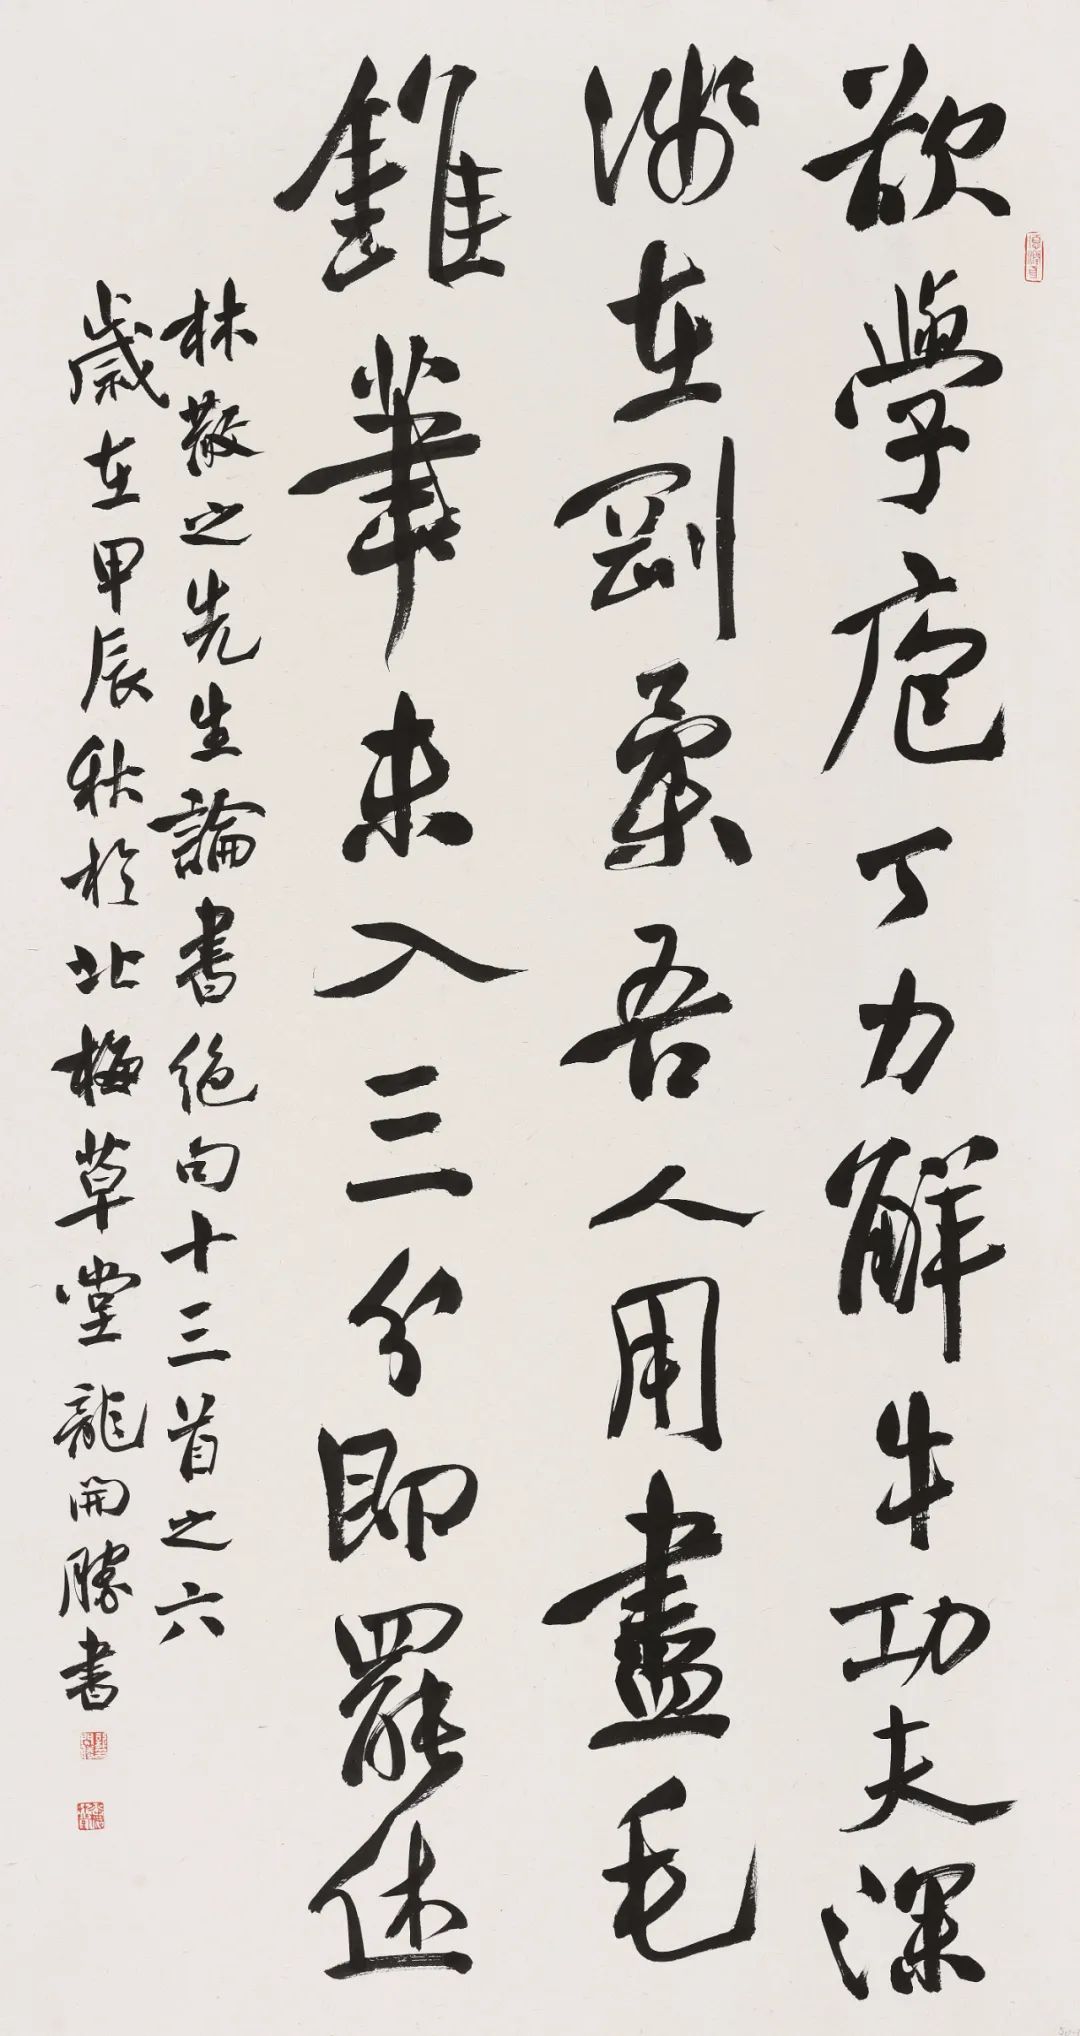 欲學庖丁力解牛功夫深
淺在剛柔吾人用盡毛
錐筆未入三分即罷休
林散之先生論書絕句十三首之六
歲在甲辰秋於北梅草堂龍開勝書